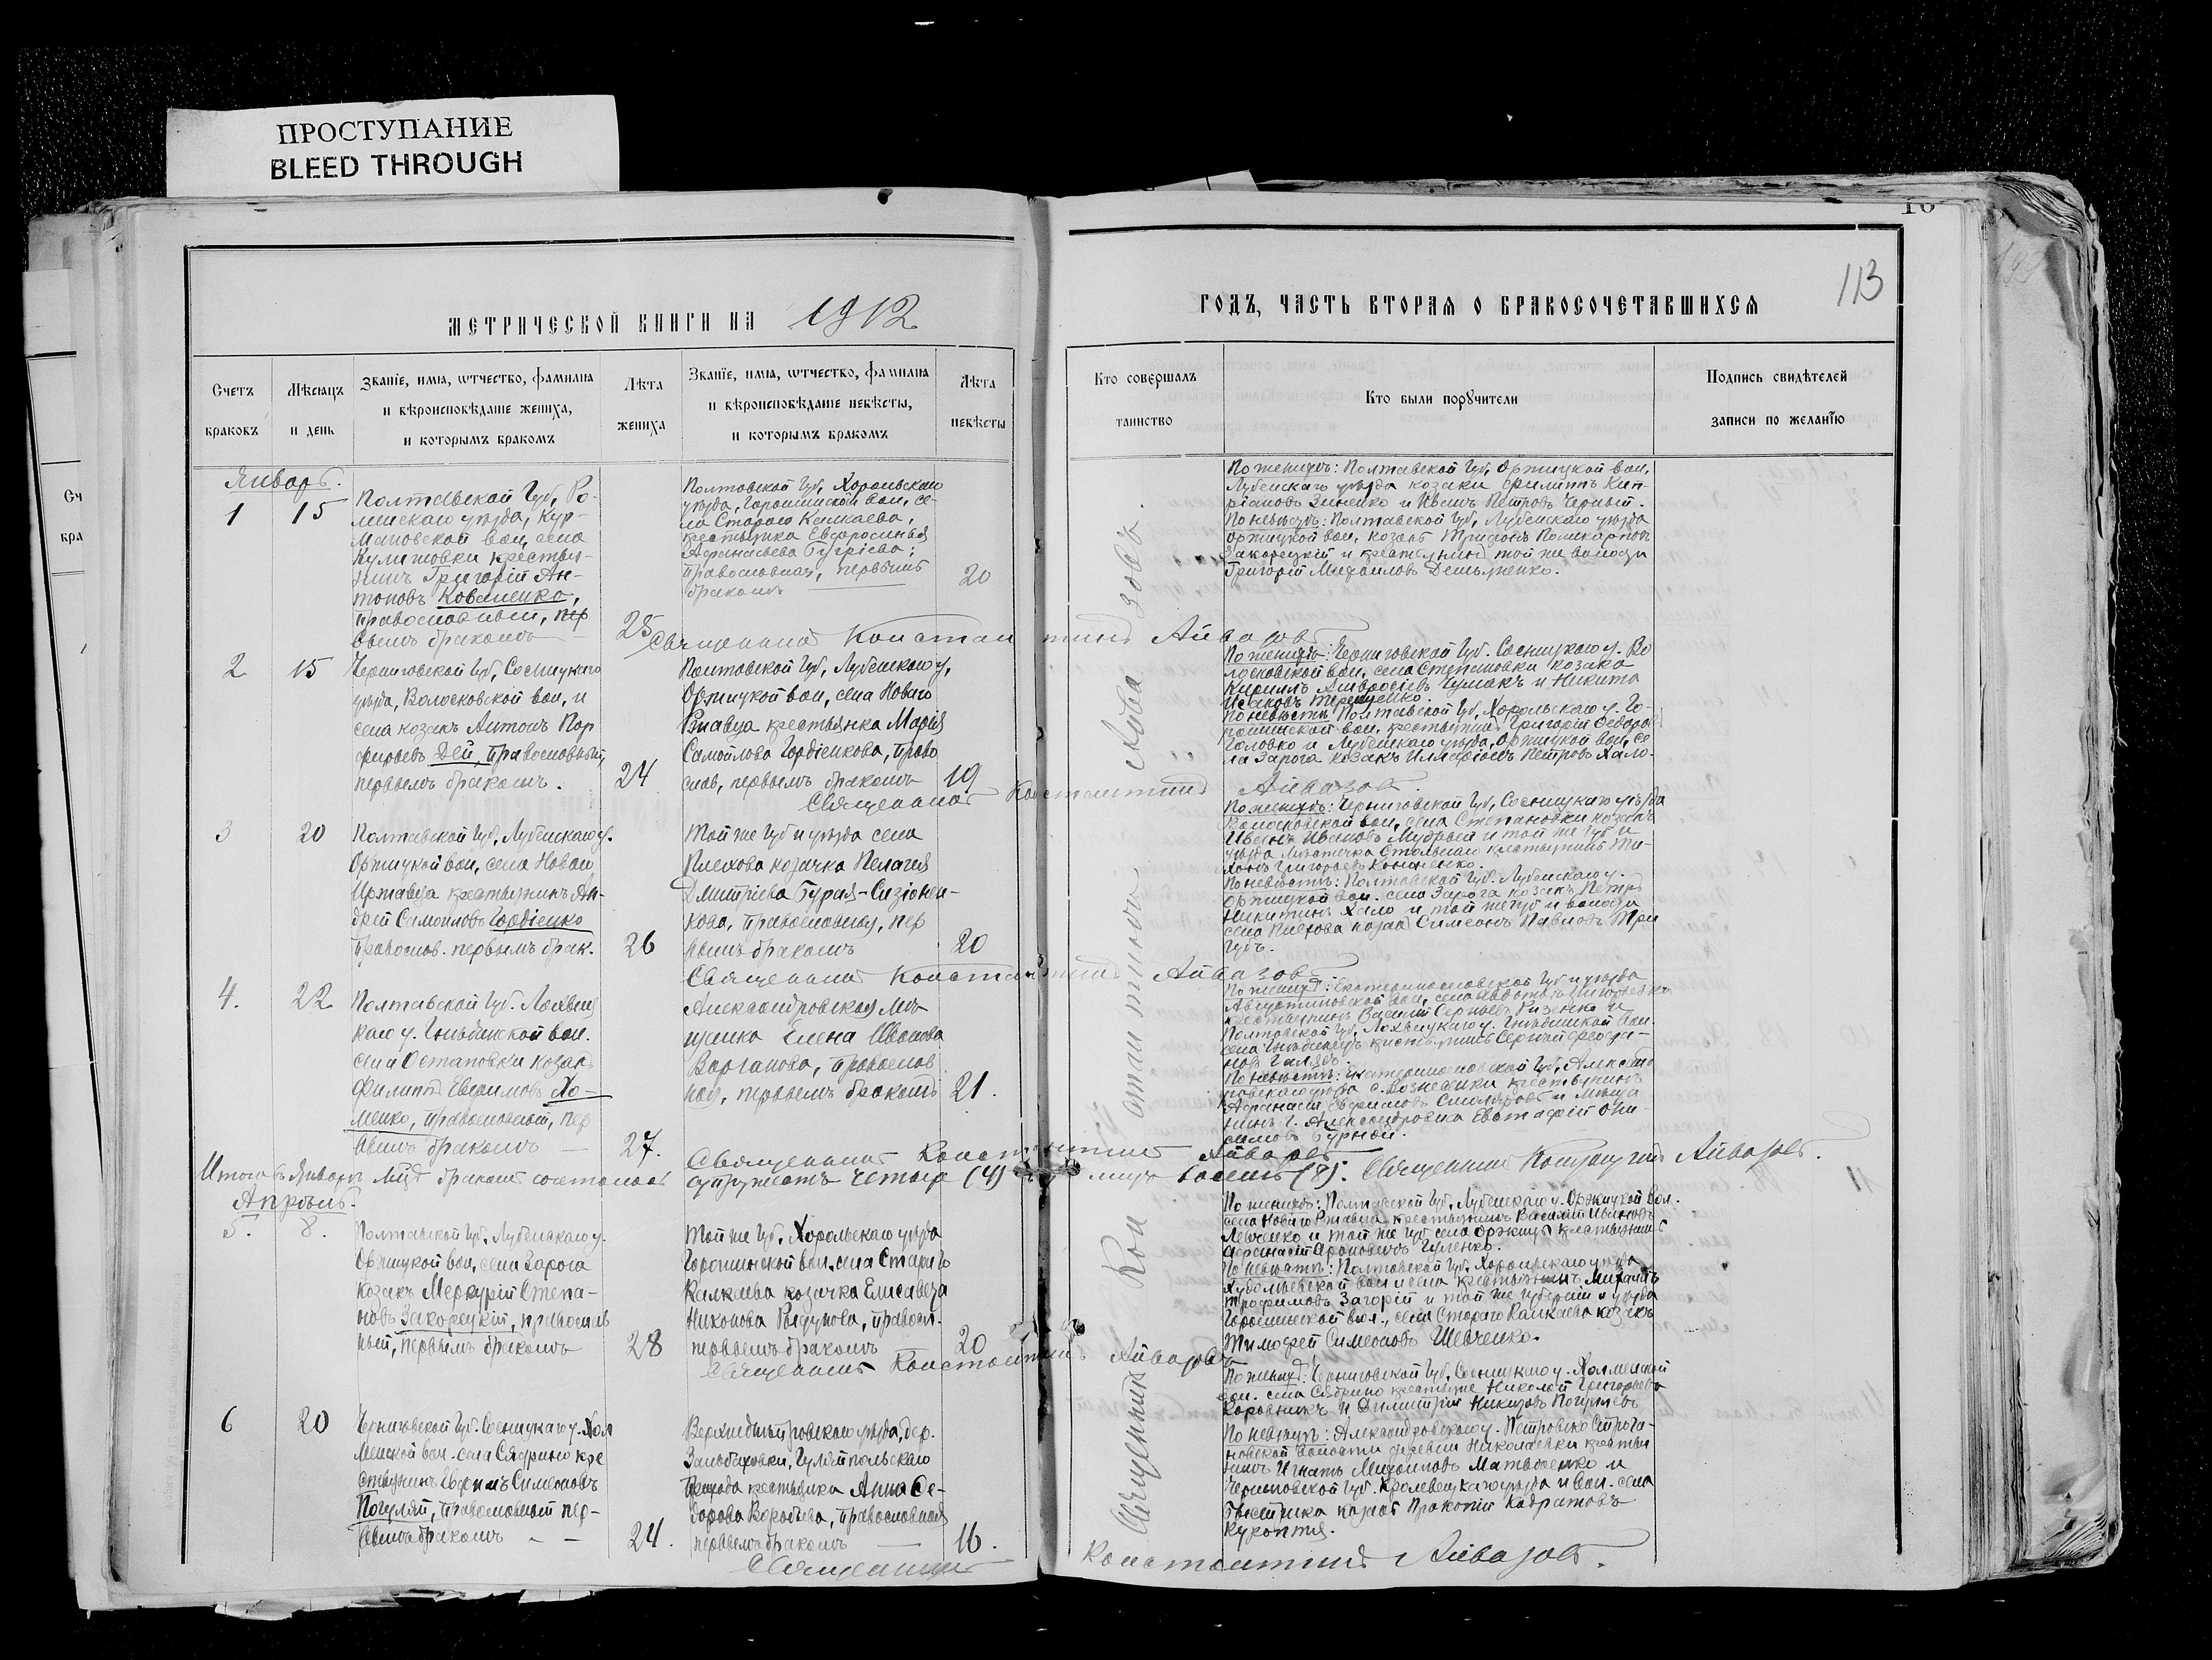 ПРОСТУПАНИЕ
BLEED THROUGH
113
МЕТРИЧЕСКОЙ КНИГИ НА 1912
ГОДЪ, ЧАСТЬ ВТОРАЯ О БРАКОСОЧЕТАВШИХСЯ
Счетъ браковъ
Мѣсяцъ и день
Званіе, имя, отчество, фамилія
и вѣроисповѣданіе жениха,
и которымъ бракомъ
Лѣта жениха
Званіе, имя, отчество, фамилія
и вѣроисповѣданіе невѣсты,
и которымъ бракомъ
Лѣта невѣсты
Кто совершалъ таинство
Кто были поручители
Подпись свидѣтелей
записи по желанію
Январь.
1
15
Полтавской Губ, Ро-
менскаго уѣзда, Кур-
мановской вол, села
Кулишовки крестья-
нинъ Григорій Ан-
тоновъ Коваленко,
православный, пер
вымъ бракомъ
25
Полтовской Губ, Хорольскаго
уѣзда, Горошинской вол, се-
ла Стараго Калкаева,
крестьянка Евфросинья
Афанасьева
православная, первымъ
бракомъ
20
По женихѣ: Полтавской Губ, Оржицкой вол,
Лубенскаго уѣзда козаки Филиппъ Кип-
ріановъ Зиненко и Иванъ Петровъ Черный.
По невѣстѣ: Полтавской Губ, Лубенскаго уѣзда
Оржицкой вол, козакъ Трифонъ Поликарпов
Закорецкій и крестьянинъ той же волости
Григорій Михаиловъ Демьяненко.
Священникъ Константинъ Айвазовъ
2
15
Черниговской Губ, Сосницкаго
уѣзда, Волосковской вол, и
села козакъ Антонъ Пор
фирьевъ Дей, православный,
первымъ бракомъ.
24
Полтовской Губ, Лубенскаго у,
Оржицкой вол, села Новаго
Ржавца крестьянка Марія
Самойлова Гордіенкова, право
слав, первымъ бракомъ
19
По женихѣ: Черниговской Губ. Сосницкаго у. Во
лосковской вол, села Степановки козака
Кириллъ Амвросіевъ Чумакъ и Никита
Исаковъ Терещенко.
По невѣстѣ: Полтавской Губ, Хорольскаго у. Го-
рошинской вол. крестьянинъ Григорій Федоров
Головко и Лубенскаго уѣзда, Оржицкой вол, се
ла Зарога козакъ Петровъ Хало.
Священникъ Константинъ Айвазовъ.
3
20
Полтавской Губ, Лубенскаго у.
Оржицкой вол, села Новаго
Иржавца крестьянинъ Ан-
дрей Самойловъ Гордіенко
православ. первымъ брак.
26
Той же Губ и уѣзда села
Плехова козачка Пелагія
Дмитріева Бурая-Сизіонен-
кова, православная, пер
вымъ бракомъ
20
По женихѣ: Черниговской Губ, Сосницкаго уѣзда
Волосковской вол, села Степановки козакъ
Иванъ Ивановъ Мудрый и той же Губ и
уѣзда мѣстечка Стольнаго крестьянинъ Ти-
хонъ Григорьевъ Кононенко.
По невѣстѣ: Полтавской Губ. Лубенскаго у.
Оржицкой вол. села Зарога козакъ Петръ
Никитинъ Хало и той же Губ и волости
села Плехова козакъ Симеонъ Павловъ Три
губъ.
Священникъ Константинъ Айвазовъ
4.
22
Полтавской Губ. Лохвиц
каго у. Гнѣдинской вол.
села Остаповки козакъ
Филиппъ Евфимовъ Хо-
менко, православный, пер
вымъ бракомъ
27.
Александровская мѣ-
щанка Елена Иванова
Варганова, православ
ная, первымъ бракомъ
21.
По женихѣ: Екатеринославской Губ и уѣзда
Августиновской вол, села
крестьянинъ Василій Сергѣевъ Ризенко и
Полтавской Губ, Лохвицкаго у. Гнѣдинской вол.
По невѣстѣ: Екатеринославской Губ, Алексан
ровскаго уѣзда с. Вознесенки крестьянинъ
Афанасій Евфимовъ Столяровъ и мѣща
нинъ г. Александровска Евстафій Они-
симовъ Бурный.
Священникъ Константинъ Айвазовъ
Итого въ Январѣ мцѣ бракомъ сочеталось супружествъ четыре (4) лицъ восемь (8). Священникъ Константинъ Айвазовъ.
Апрѣль.
5.
8.
Полтавской Губ, Лубенскаго у.
Оржицкой вол, села Зарога
козакъ Меркурій Степа-
новъ Закорецкій, православ
ный, первымъ бракомъ
28
Той же Губ, Хорольскаго уѣзда
Горошинской вол, села Стараго
Калкаева козачка Елисавета
Никонова Рыдунова, правосл.
первымъ бракомъ
20
По женихѣ: Полтавской Губ, Лубенскаго у. Оржицкой вол.
села Новаго Ржавца крестьянинъ Василій Ивановъ
Левченко и той же Губ села Оржицы крестьянинъ
По невѣстѣ: Полтавской Губ, Хорольскаго уѣзда
вол и села крестьянинъ Михаилъ
Трофимовъ Загорій и той же Губерніи и уѣзда
Горошинской вол., села Стараго Калкаева козакъ
Тимофей Симеоновъ Шевченко.
Священникъ Константинъ Айвазовъ
6
20
Черниговской Губ. Сосницкаго у. Хол
менской вол. села Сядрино кре
стьянинъ Ефимъ Симеоновъ
Погуляй, православный пер-
вымъ бракомъ
24.
Верхнеднѣпровскаго уѣзда, дер.
Гуляйпольскаго
прихода крестьянка Анна Ѳе-
дорова Воробьева, православная
первымъ бракомъ
16.
По женихѣ: Черниговской Губ, Сосницкаго у. Холменской
вол. села Сядрино крестьяне Николай Григорьевъ
Коровникъ и Димитрій Никитовъ Погуляевъ
По невѣстѣ: Александровскаго у. Петровско Строга-
новской волости деревни Николаевки крестья
нинъ Игнатъ Михаиловъ Матвѣенко и
Черниговской Губ. Кролевецкаго уѣзда и вол. села
Быстрика козакъ Прокопій Кодратовъ
Священникъ Константинъ Айвазовъ.
Священникъ Константинъ Айвазовъ.